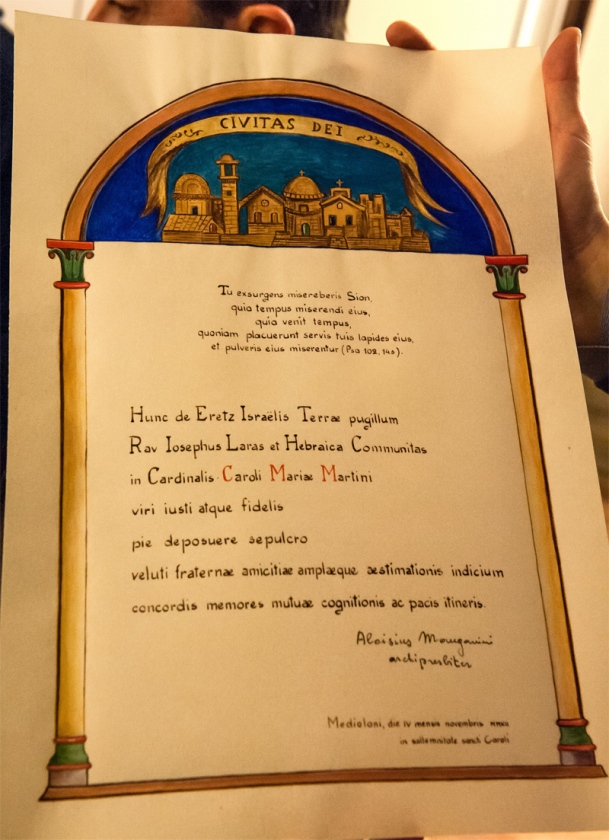 CIVITAS DEI
Tu exsurgens misereberis Sion,
quia tempus miserendi eius,
quia venit tempus,
quoniam placuerunt servis tuis lapides eius,
et pulveris eius miserentur (Psa 102, 14s).
Hunc de Eretz Israëlis Terræ pugillum
Rav Iosephus Laras et Hebraica Communitas
in Cardinalis Caroli Mariæ Martini
viri iusti atque fidelis
pie deposuere sepulcro
veluti fraternæ amicitiæ amplæque æstimationis indicium
concordis memores mutuæ cognitionis ac pacis itineris.
Aloisius Manganini
archipresbiter
Mediolani, die IV mensis novembris
in sollemnitate sancti Caroli